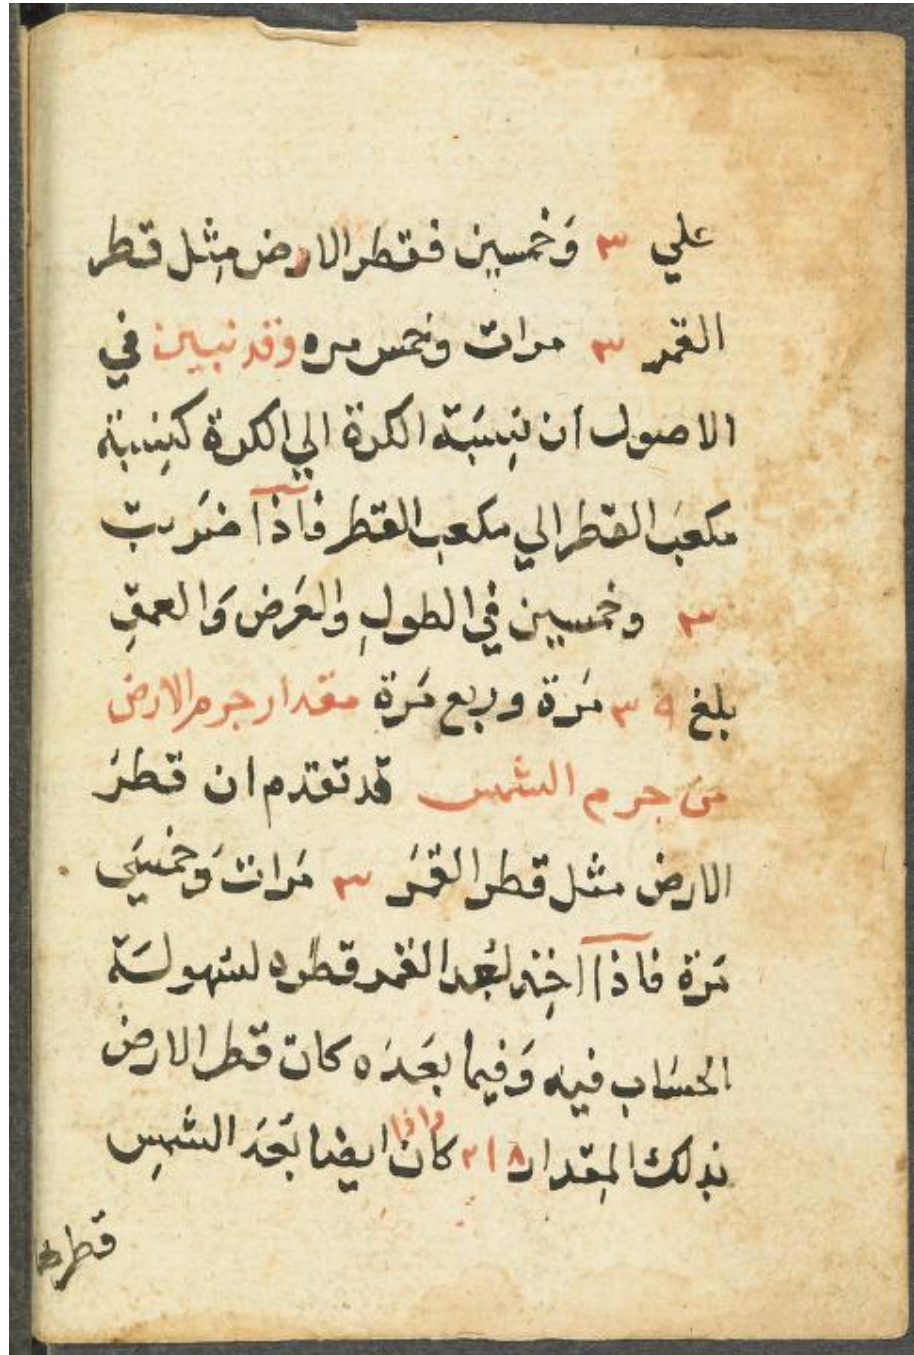 علي ٣ وَخمسين فقطر الارض مِثل قطر
القمر ٣ مرات وخمس مره وقد تبين في
الاصول ان نِسبَة الكرة الي الكرة كنِسبة
مكعبَ القطر الي مكعب القطر فاذا ضرَبت
٣ وخمسين في الطولِ والعَرض وَالعمقِ
بلغ ٣٩ مَرة وربع مَرة مقدار جرم الارض
من جرم الشمس قد تقدم ان قطرَ
الارض مثل قطر القمَر ٣ مَرات وَخمسَي
مَرة فاذا اخِذ لبُعد القمر قطره لسُهولَة
الحسَاب فيه وَفيما بعَدَه كان قطر الارض
بذلك المِقدار ٣١٨ واذا كان ايضا بَعدَ الشمِس
قطره